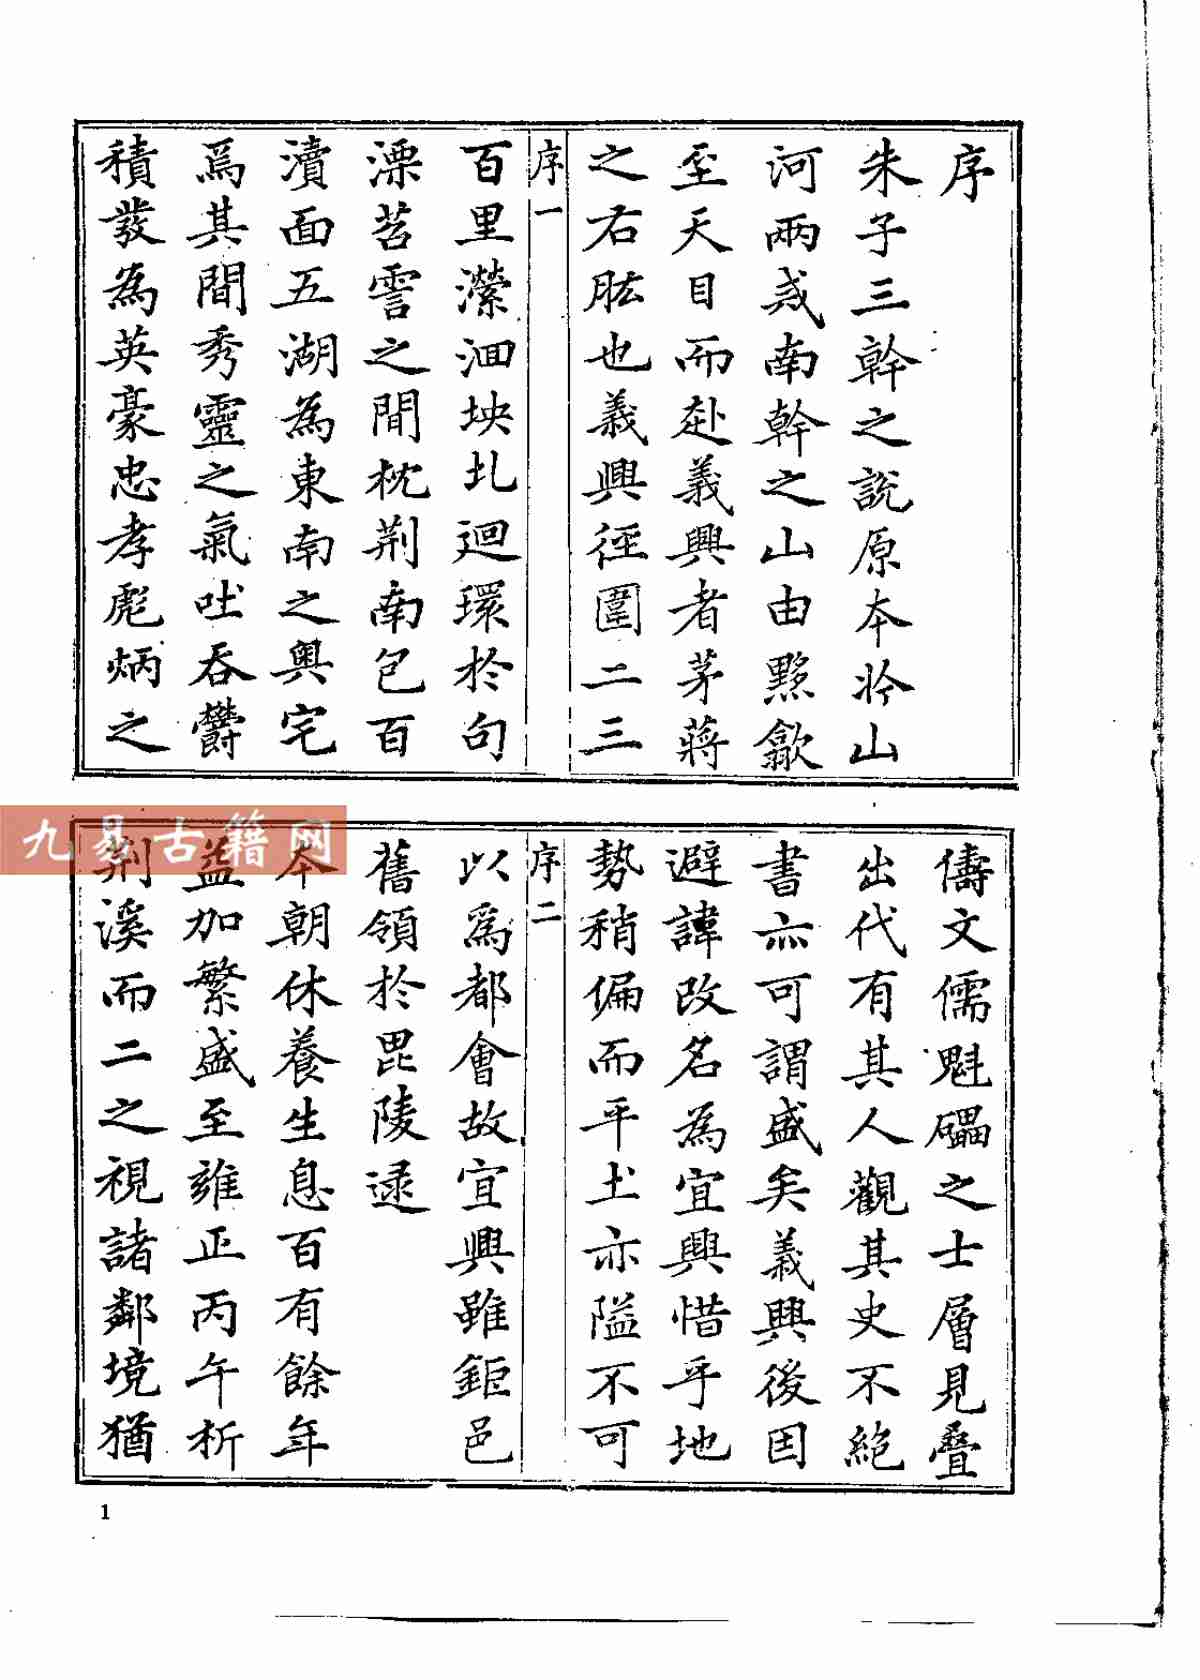 序
朱子三幹之說原本於山
河兩戒南幹之山由黟歙
至天目而赴義興者茅蔣
之右肱也義興徑圍二三
序一
百里瀠洄坱圠迴環於句
溧苕霅之間枕荆南包百
瀆面五湖為東南之奥宅
焉其間秀靈之氣吐吞欝
積發為英豪忠孝彪炳之
儔文儒魁礧之士層見疊
出代有其人觀其史不絕
書亦可謂盛矣義興後因
避諱改名為宜興惜乎地
勢稍偏而平土亦隘不可
序二
以爲都會故宜興雖鉅邑
舊領於毘陵逯
本朝休養生息百有餘年
益加繁盛至雍正丙午析
荆溪而二之視諸鄰境猶
九易古籍网
1